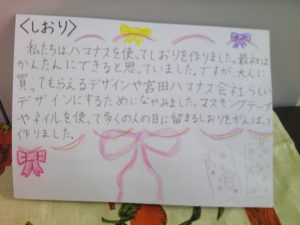 〈しおり〉
私たちはハマナスを使ってしおりを作りました。最初は
かんたんにできると思っていました。ですが、大人に
買ってもらえるデザインや宮田ハマナス会社らしい
デザインにするためになやみました。マスキングテープ
やネイルを使って多くの人の目に留まるしおりをがんばって
作りました。